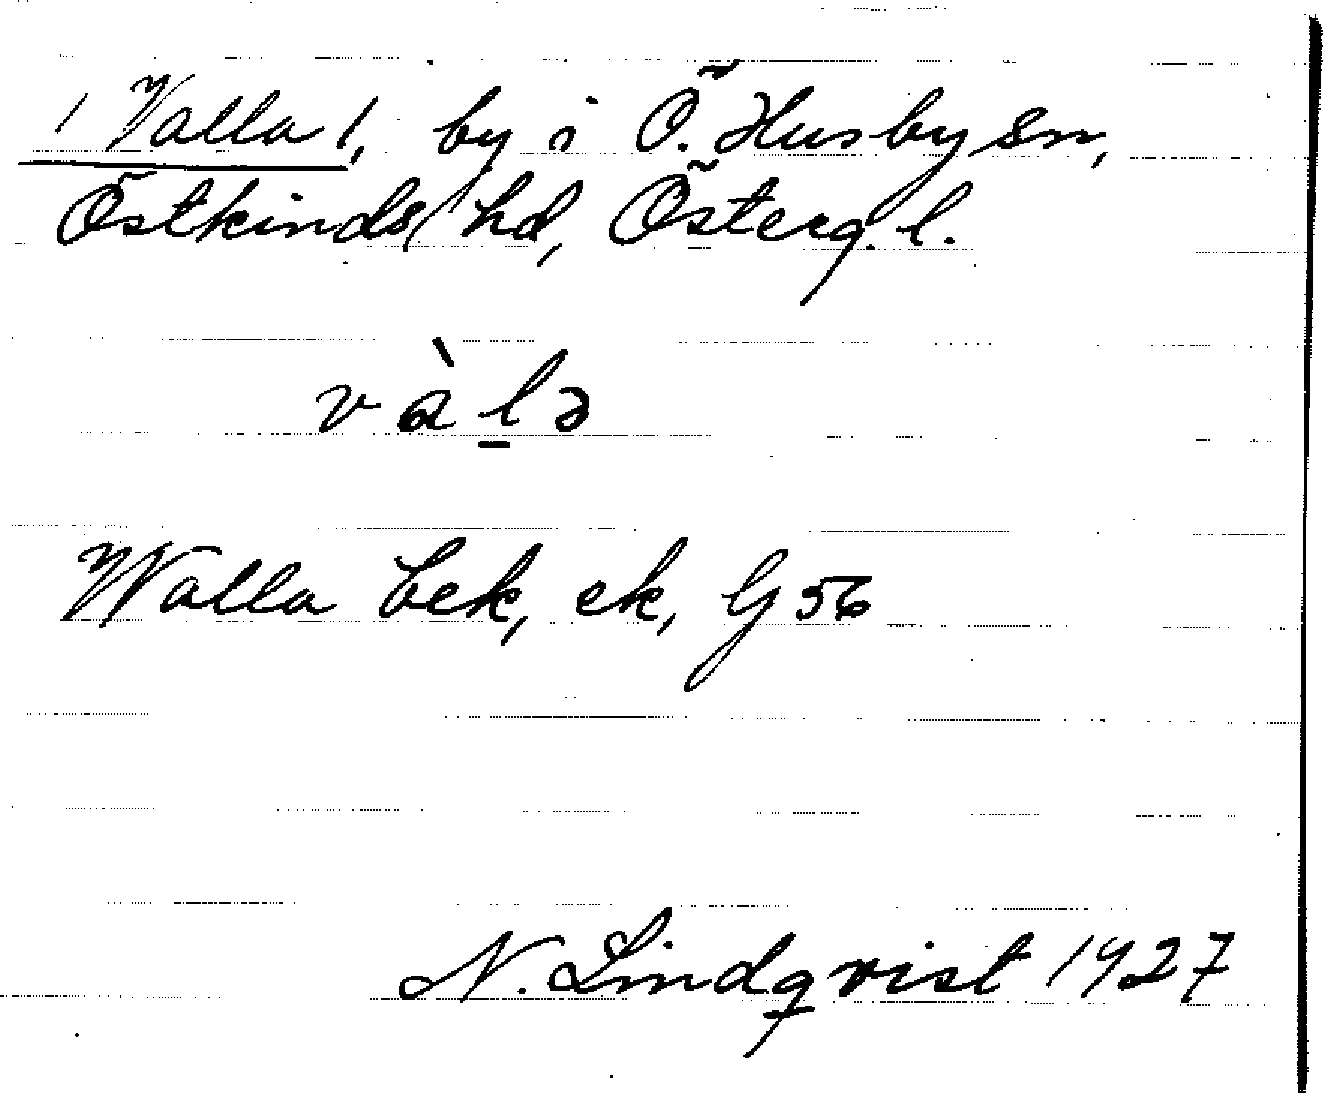 / Valla /, by i Ö. Husby sn,
Östkinds hd, Österg. l.
vàl̲ə
Walla bek, ek, G 56
N. Lindqvist 1927